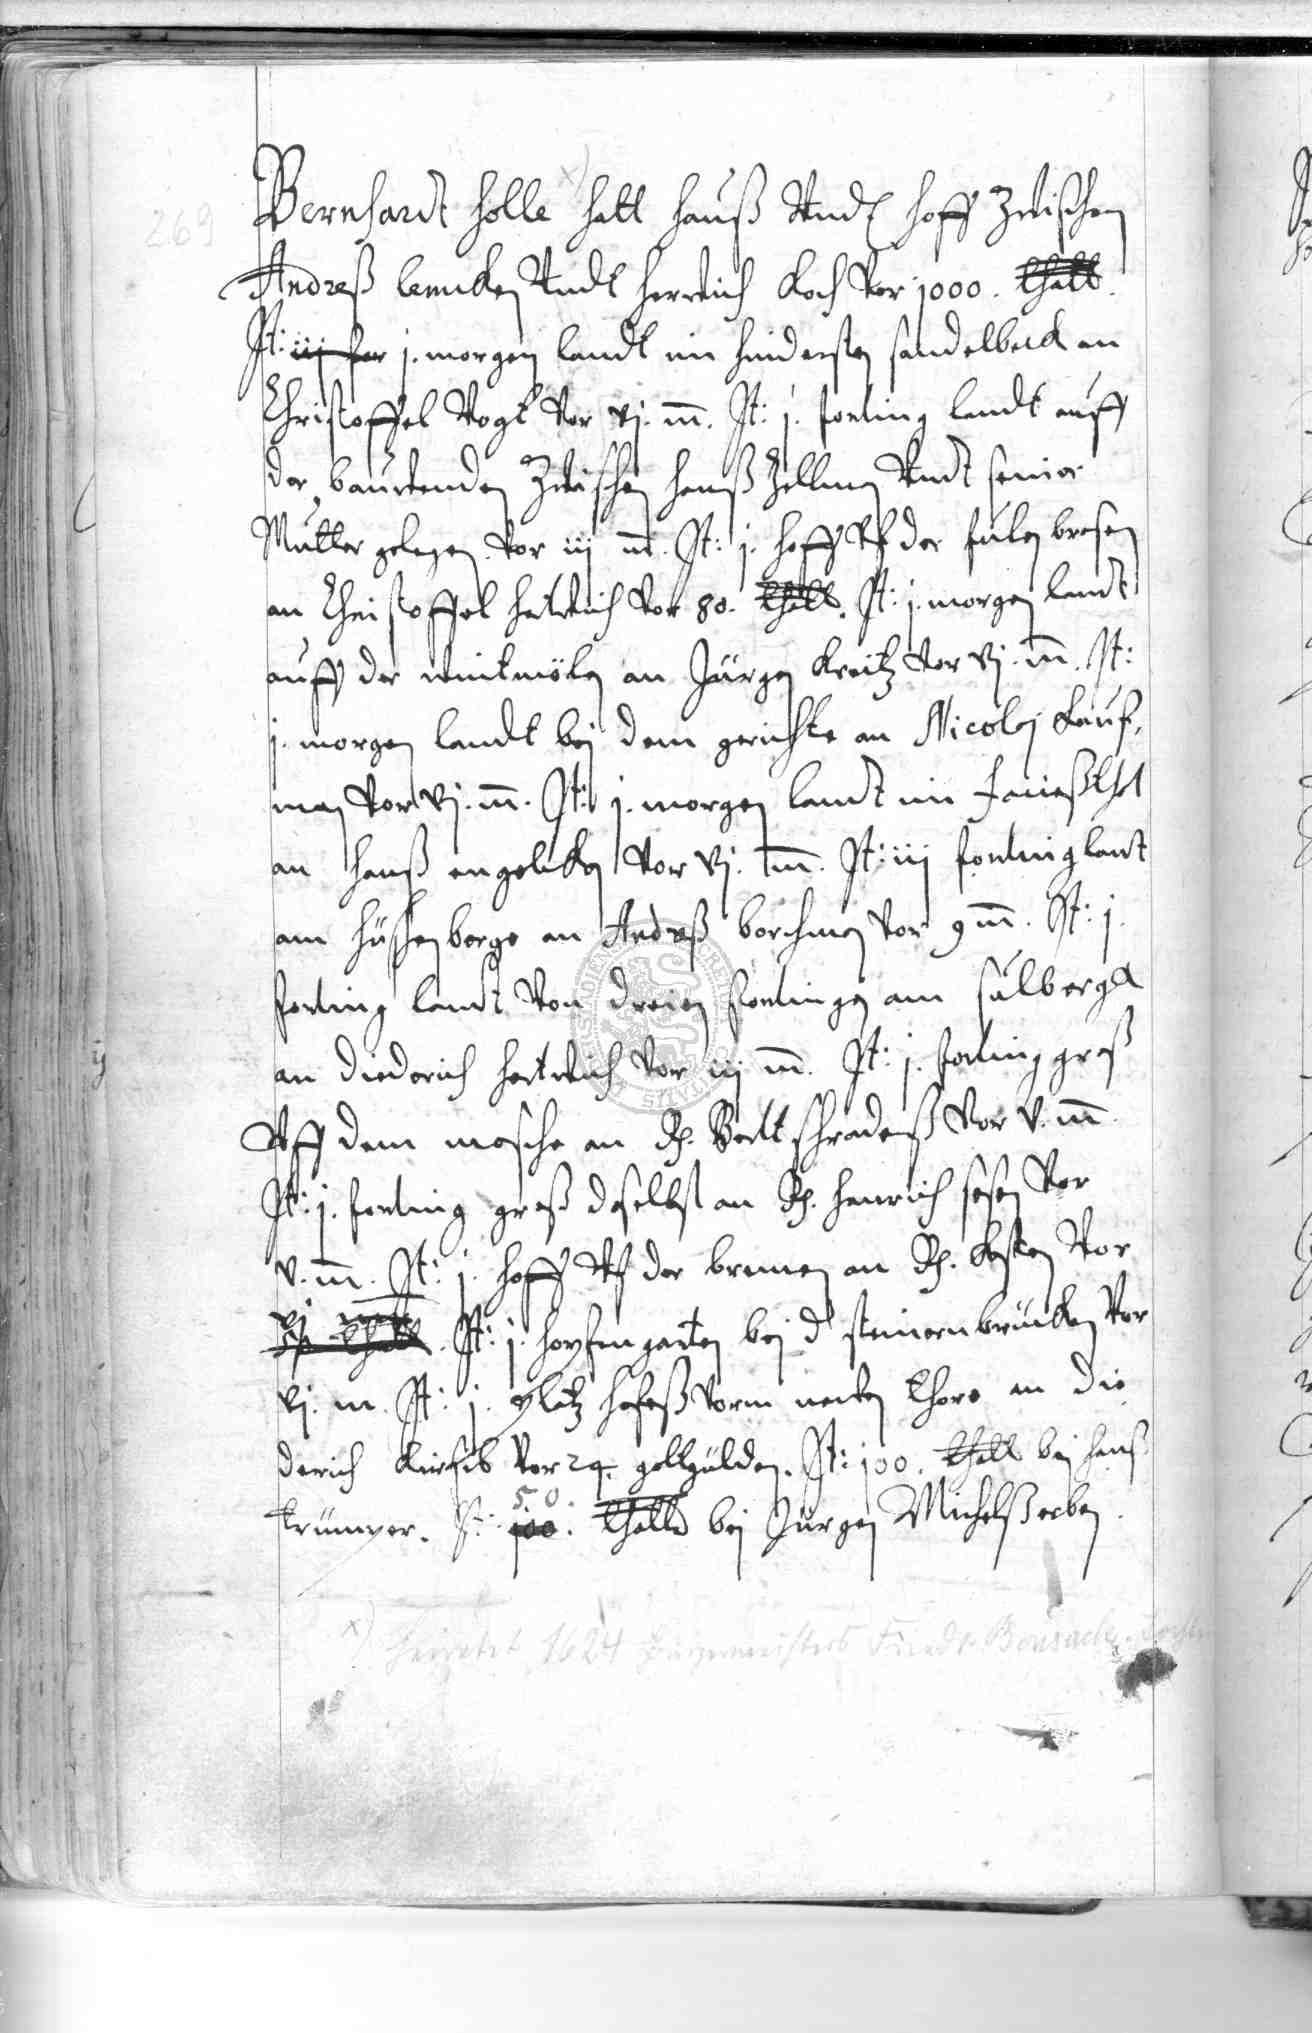 269
Bernhardt Holle hatt hauß Vndt hoff Zwischen
Andreß lemcken Vndt herwich Koch Vor 1000. thall.
It: iij for j. morgen landt im hindersten sandelbeck an
Christoffel Vogt Vor vj. m. It: j. forling landt auff
der Zwischen hanß Vndt seiner
Mutter gelegen Vor iij m. It: j. hoff Vf der fulen bresen
an Christoffel hertwich Vor 80. thall. It: j. morgen landt
auff der wintmölen an Jürgen Kreitz Vor vj. m. It:
j. morgen landt bei dem gerichte an Nicolej Kauf,
man Vor vj. m. It: j. morgen landt im
an hanß engelcken Vor vj. m. It: iij forling lant
am hüschenberge an Andreß borchmen Vor 9 m. It: j.
forling landt Von dreien forlingen am sülbergk
an Diederich hertwich Vor iij m. It: j. forling graß
Vff dem masche an R. Bartt schradenß Vor v. m.
It: j. forling graß daselbst an R. Henrich sesen Vor
v. m. It: j. hoff Vf der bremen an R. Kosten Vor
vj m
thall. It: j. hopfengarten bej d steinernbrücken Vor
vj. m. It: j. platz hofeß Vorm neuen Thore an Die
derich Vor 24. goltgülden. It: 100. thall bei hanß
50.
Trümper. It: 100. thaller bei Jürgen Michelß erben.
x) Heiratet 1624 Bürgermeisters Friedr. Bonsacks Tochter